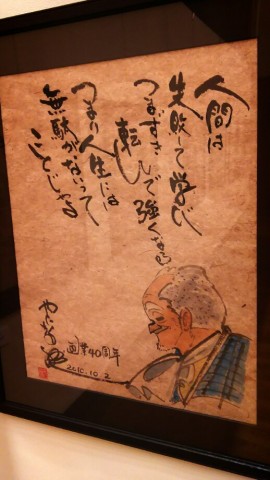 人間は
失敗して学び
つまずき
転んで強くなる
つまり人生には
無駄がないって
ことじゃ
画業40周年
2010.10.2